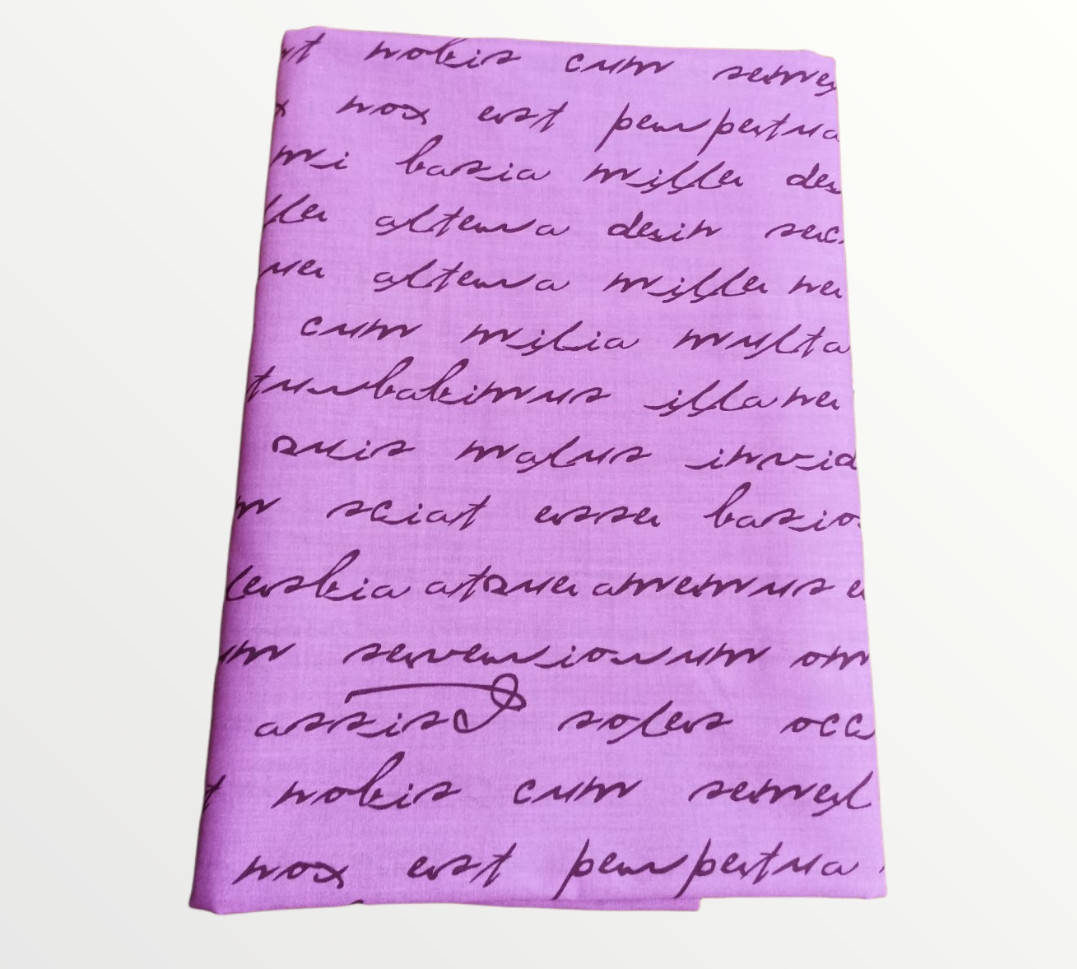 ut nobis cum seme
x nox est perpetua
mi basia mille de
lle altera dein sec
ue altera mille ne
cum milia multa
turbabimus illa ne
Quis malus invid
m sciat esse basio
lesbia atque amemus e
um severiorum om
assis! soles occ
t nobis cum semel
nox est perpetua